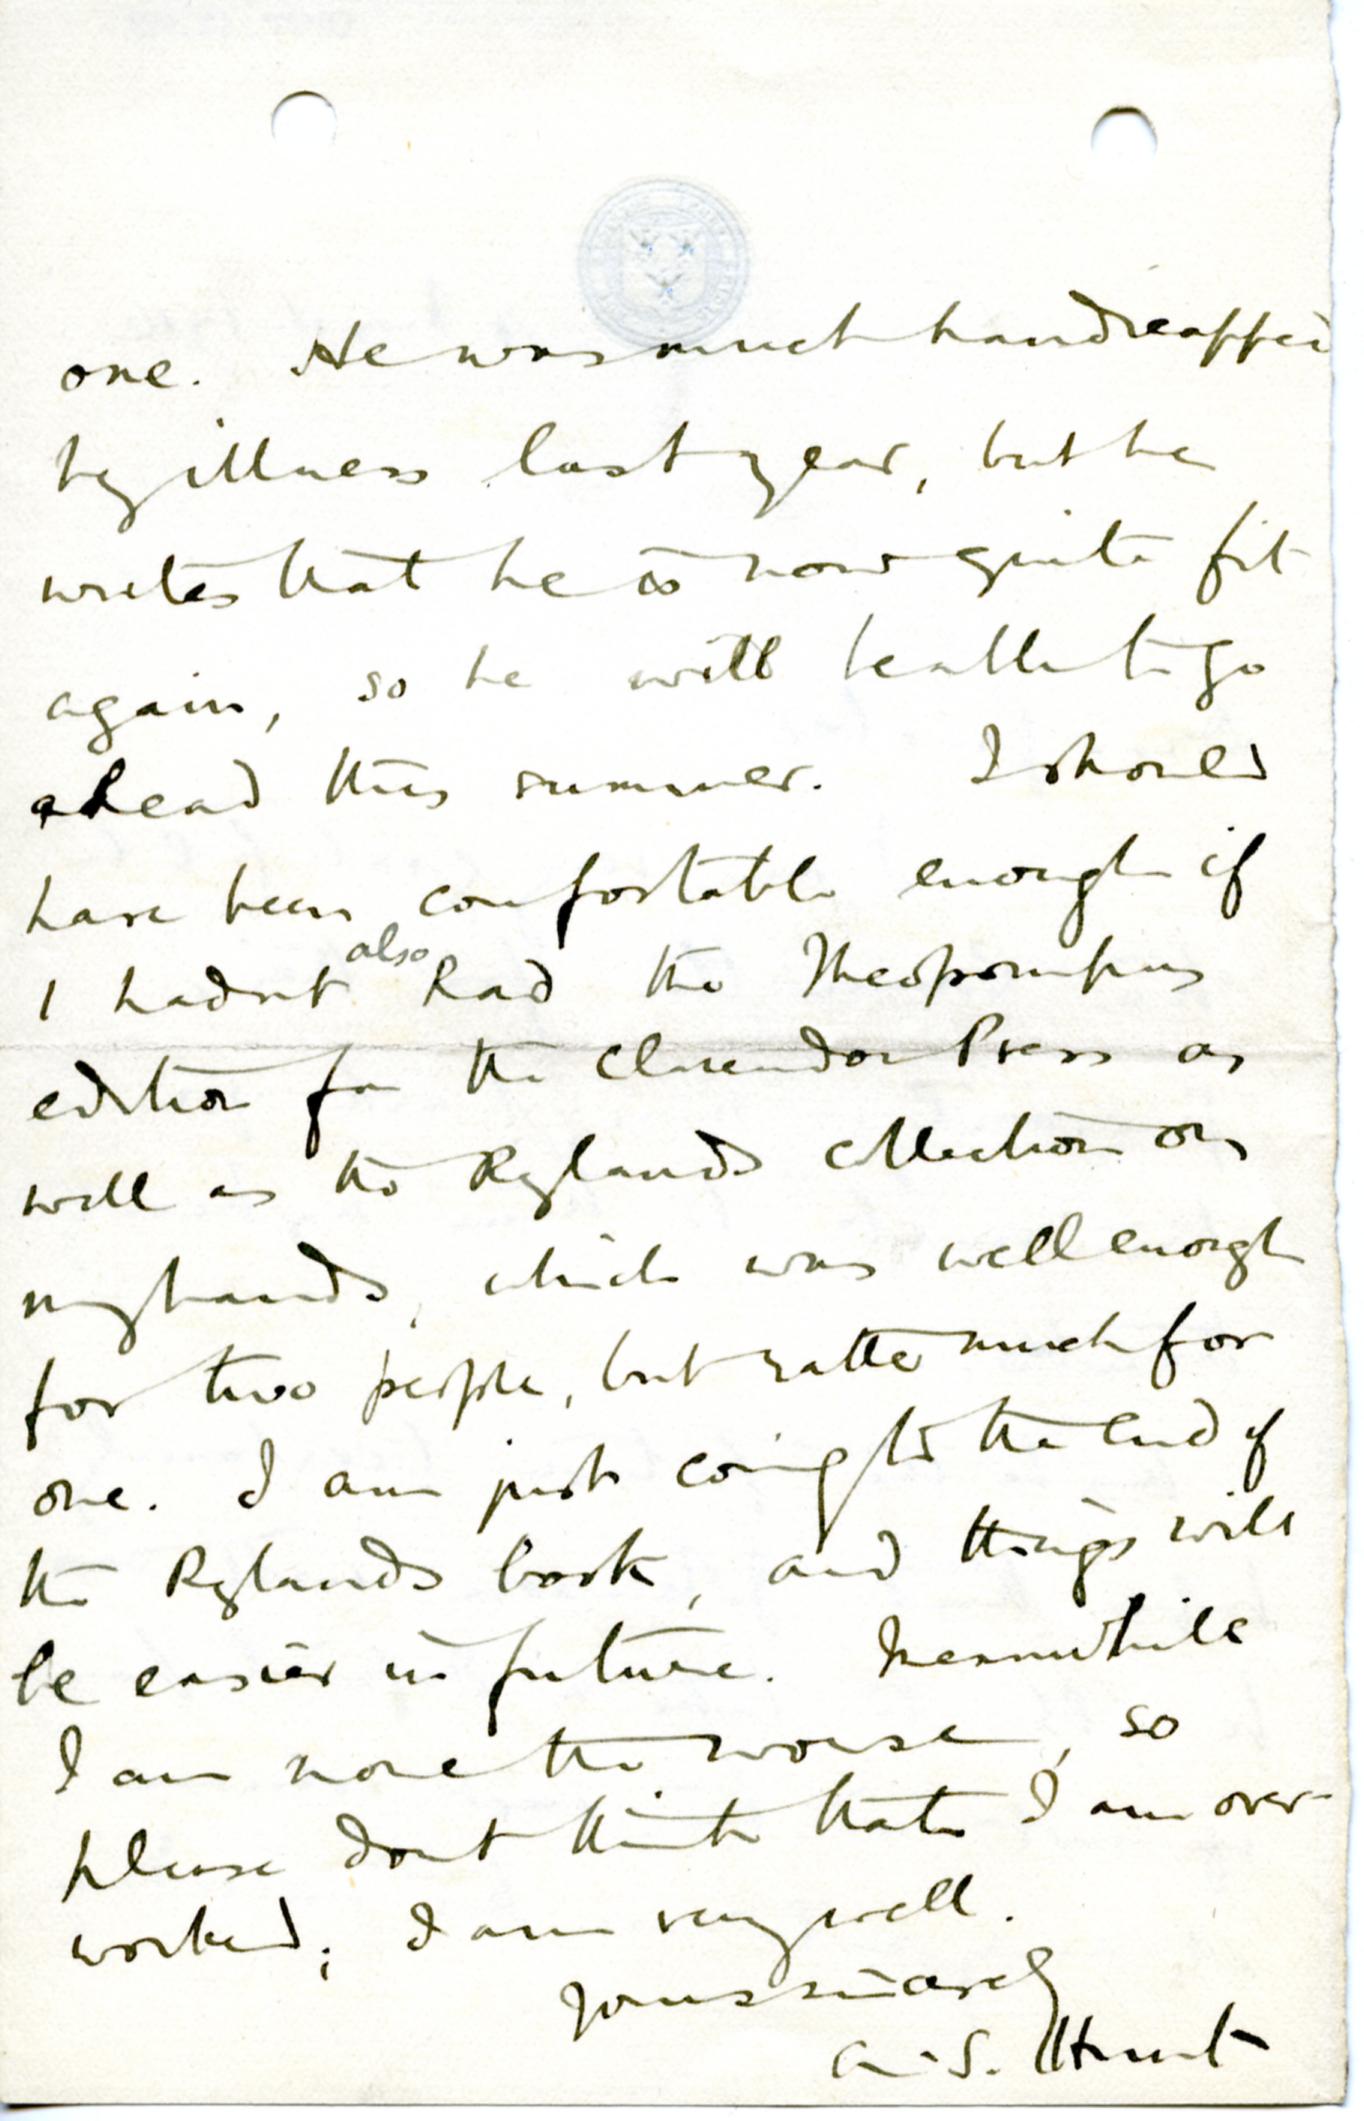 one. He was much handicapped
by illness last year, but he
writes that he is now quite fit
again, so he will be able to go
ahead this summer. I should
have been comfortable enough if
I hadn't also had the Theopompus
edition for the Clarendon Press as
well as the Rylands collection on
my hands, which was well enough
for two people, but rather much for
one. I am just coming to the end of
the Rylands book, and things will
be easier in future. Meanwhile
I am none the worse, so
please dont think that I am over-
worked; I am very well.
Yours sincerely
A. S. Hunt